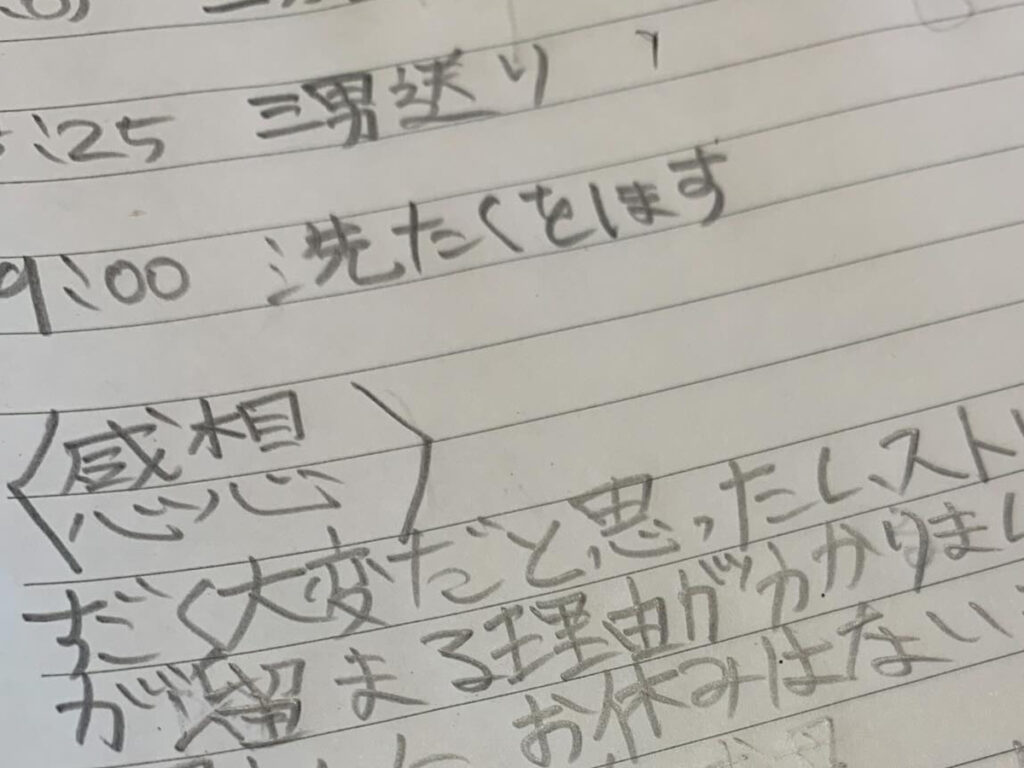 :25 三男送り
9:00 洗たくをします
〈感想〉
すごく大変だと思ったし、スト
が溜まる理由が分かりまし
お休みはない